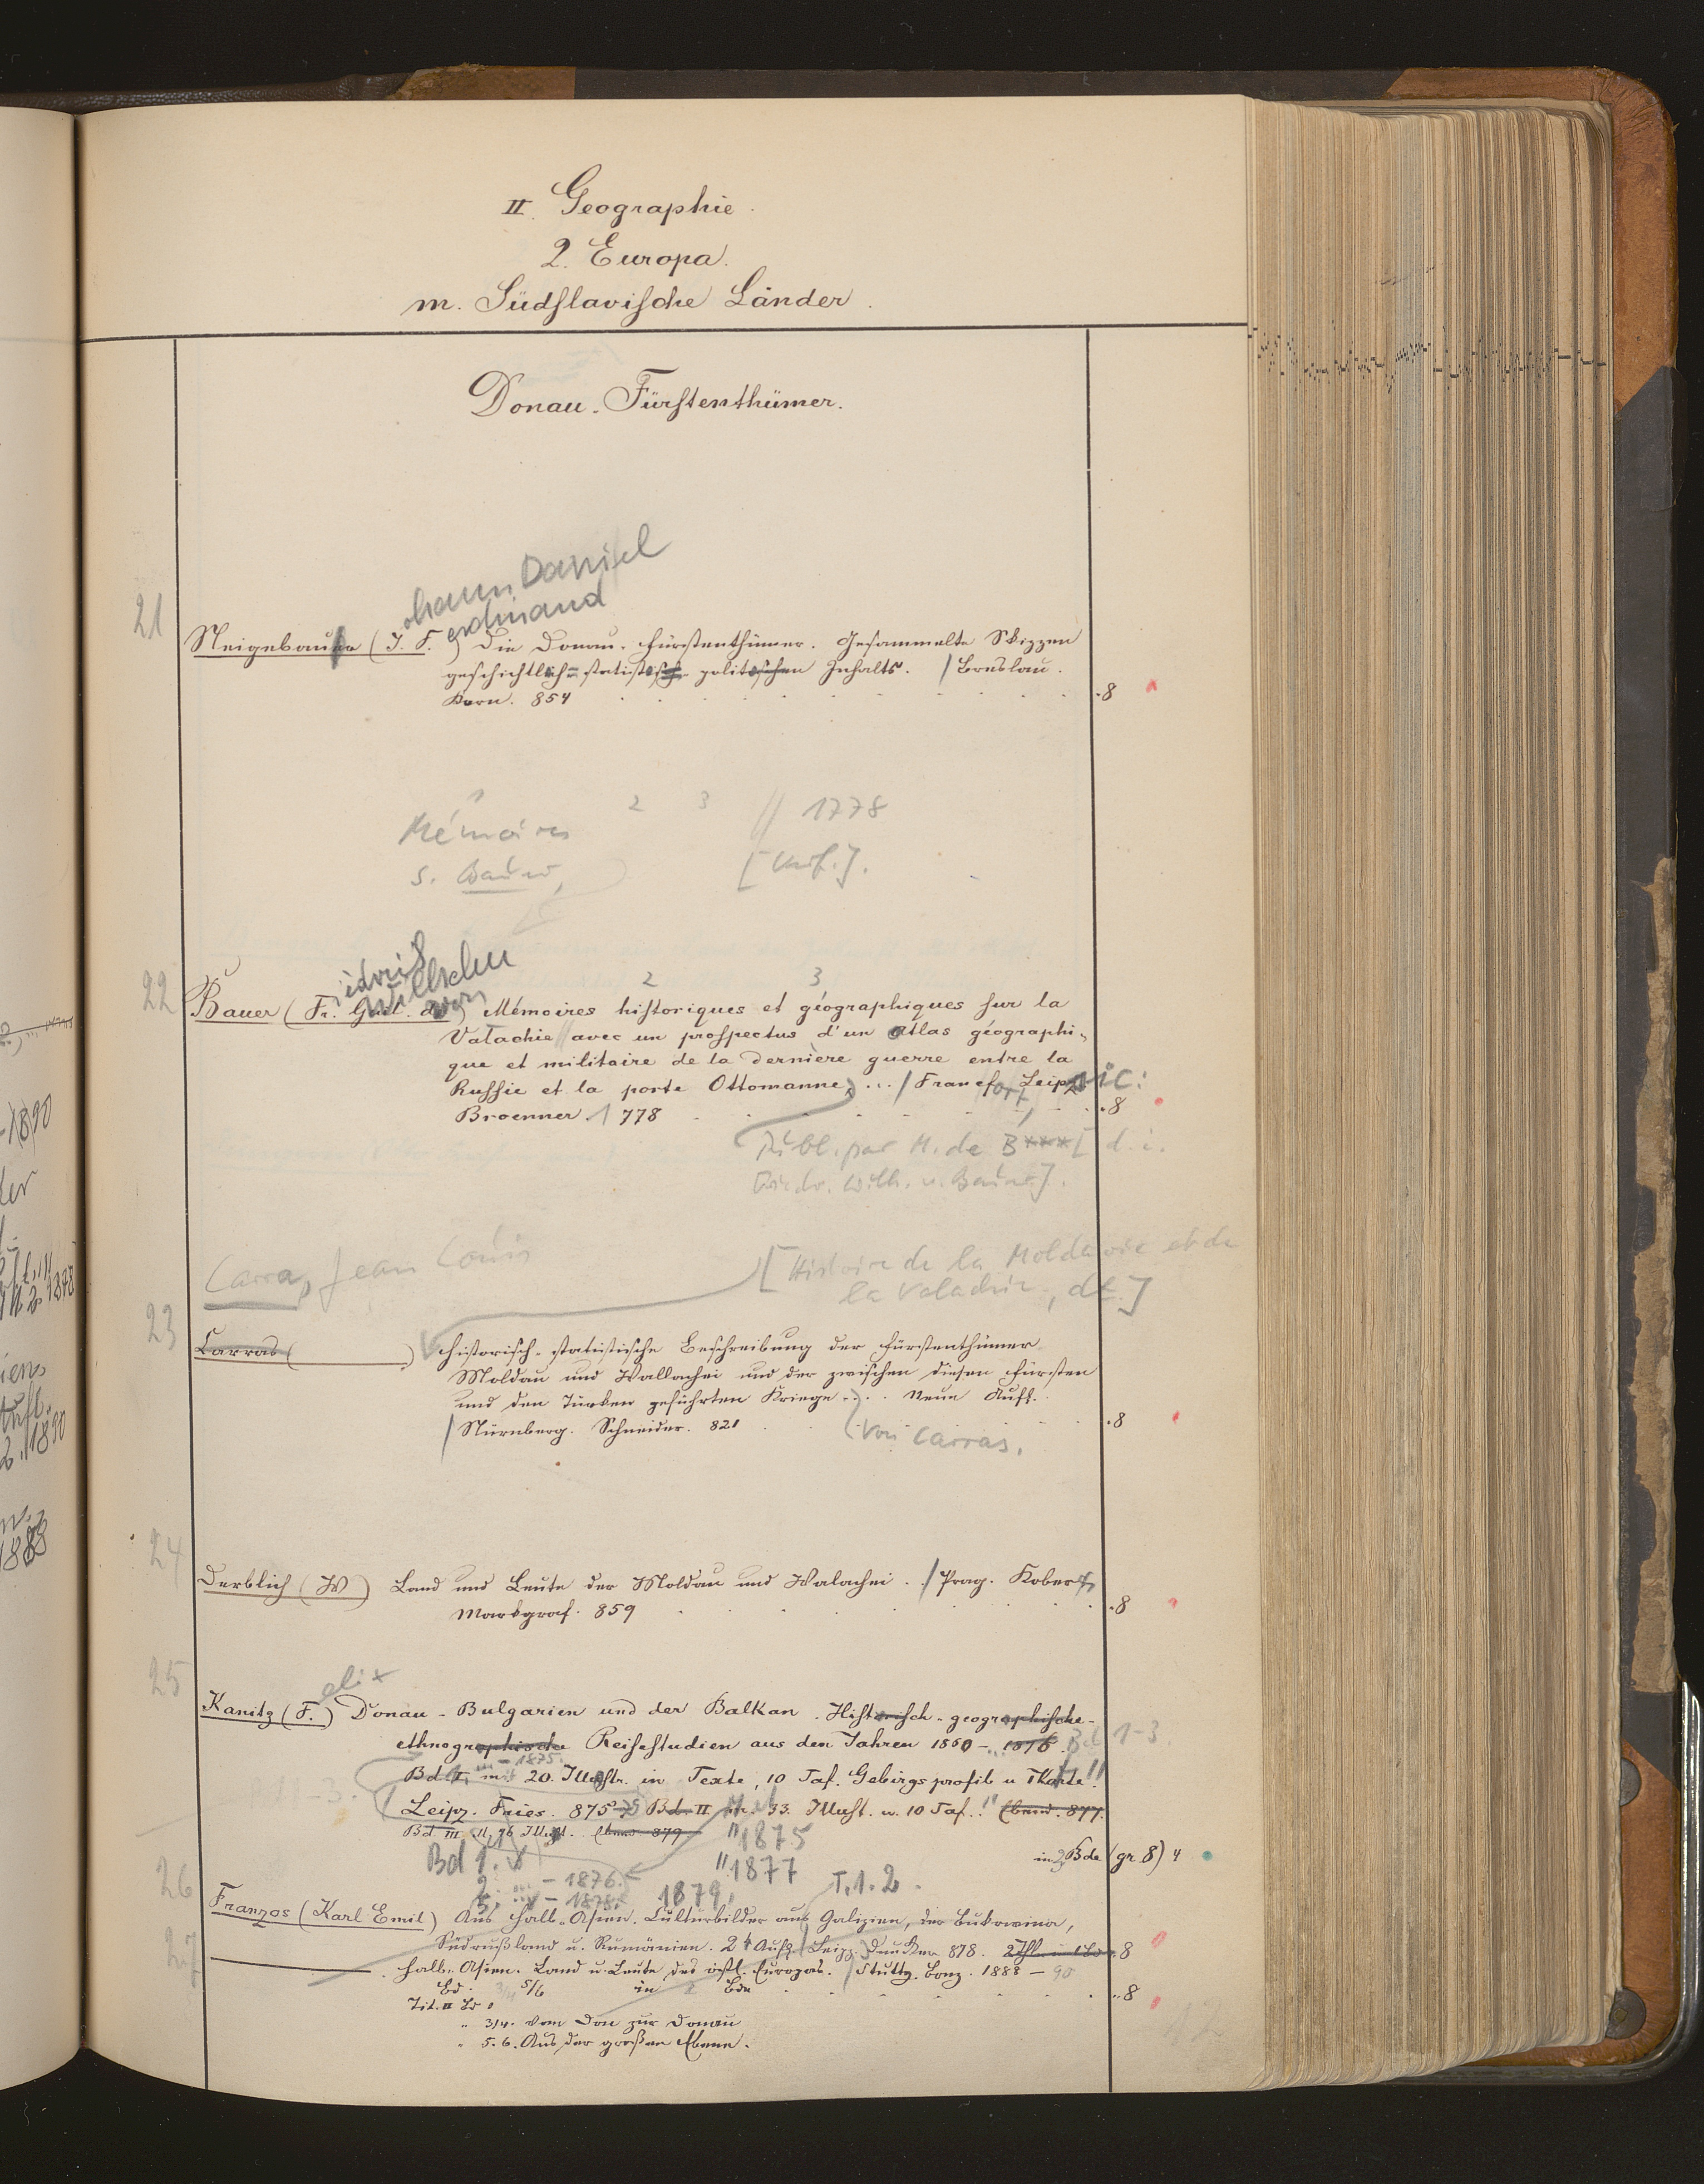 II. Geographie.
2. Europa.
m. Südslavische Länder.
Donau-Fürstenthümer.
ohann Daniel
erdinand
21
Neigebaur (J. F.) Die Donau-Fürstenthümer. Gesammelte Skizzen
geschichtlich-statistisch-politischen Inhalts. / Breslau.
Kern. 854 . 8
Mémoires 2 3 // 1778
s. Bauer, [Umf.].
iedrich
Wilhelm
von
2 3
22
Bauer (Fr. Guil. de) Mémoires historiques et géographiques sur la
Valachie // avec un prospectus d'un atlas géographi-
que et militaire de la dernière guerre entre la
Russie et la porte Ottomanne) ... / Francfort, Leipzic:
Broenner 1778 . 8
Publ. par M. de B*** [d. i.
Friedr. Wilh. v. Bauer].
Carra, Jean Louis [Histoire de la Moldavie et de
la Valachie, dt.]
23
Carras ( ) Historisch-statistische Beschreibung der Fürstenthümer
Moldau und Wallachei und der zwischen diesen Fürsten
und den Türken geführten Kriege ... Neue Aufl.
/ Nürnberg. Schneider. 821 . 8
(von Carras.
24
Derblich (W) Land und Leute der Moldau und Walachei. / Prag. Kober &
Markgraf. 859 . 8
25
elix
Kanitz (F.) Donau-Bulgarien und der Balkan. Historisch-geographische-
ethnographische Reisestudien aus den Jahren 1860-1876. Bd 1-3.
- 1875.
Bd I. mit 20. Illustr. im Texte, 10 Taf. Gebirgsprofil u 1 Karte.
Leipz. Fries. 875 Bd. II m. 33. Illust. u. 10 Taf. Ebend. 877.
Bd III Illust. Ebend. 879 1875
Bd 1. 1877 in Bde (gr. 8) 4
2. - 1876.
3. - 1878. 1879. T. 1. 2.
26
Franzos (Karl Emil) Aus Halb-Asien. Culturbilder aus Galizien, der Bukowina,
Südrußland u. Rumänien. 2t Aufl / Leipz. Duncker 878. 8
27
Halb-Asien. Land u. Leute des östl. Europas. / Stuttg. Bonz. 1888 - 90
Bd. 3/4 5/6 in 2 Bde . 8
Tit. d Bd
" 3/4. Vom Don zur Donau
" 5. 6. Aus der großen Ebene.